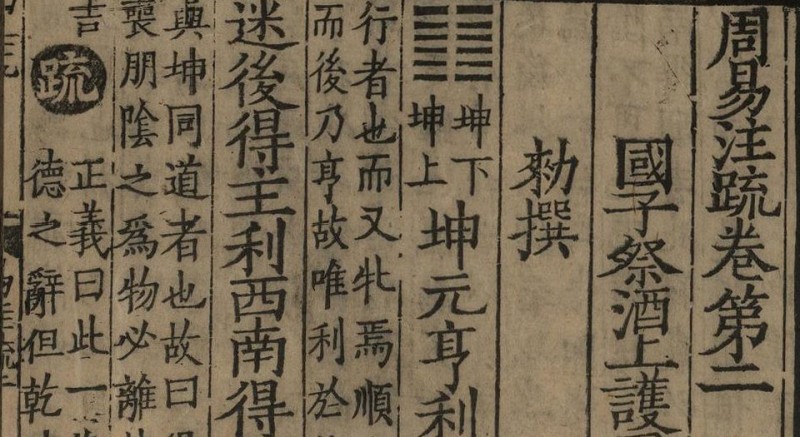 周易注疏卷第二
國子祭酒上護
勑撰
䷁
坤下
坤上
坤元亨利
行者也而又牝焉順
而後乃亨故唯利於
迷後得主利西南得
與坤同道者也故曰
喪朋陰之爲物必離
吉
疏
正義曰此一
德之辭但乾